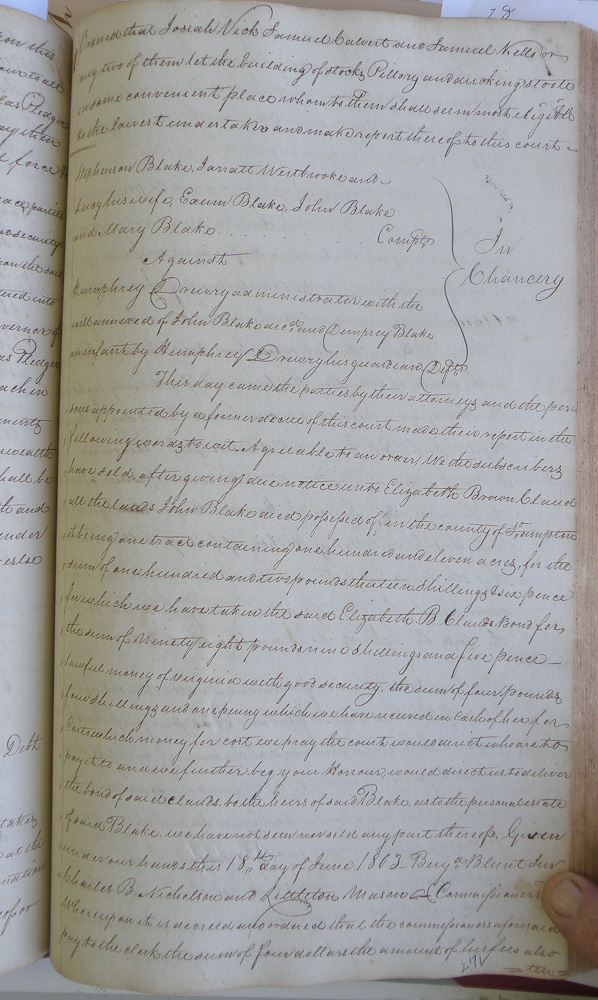 28
Ordered that Josiah Vick Samuel Calvert and Samuel Kello or
any two of them let the building of stocks Pillory and ducking stoole
in some convenient place whom to them shall seem most eligible
to the lowest undertaker and make report thereof to this court -
Stephenson Blake, Jarratt Westbrooke and
Lucy his wife, Exum Blake, John Blake
and Mary Blake. Compts
Against
In Chancery
Humphrey Drewry administrator with the
will annexed of John Blake decd. and Dempsey Blake
an infant by Humphrey Drewry his guardian Defts
This day came the parties by their attorneys and the per-
sons appointed by a former decree of this court made their report in the
following words to wit. Agreeable to an order We the subscribers
have sold, after giving due notice unto Elizabeth Brown Claud
all the lands John Blake died possessed of, in the county of So.ampton
it being one tract containing one hundred and eleven acres, for the
sum of one hundred and two pounds thirteen shillings & six pence
for which we have taken the said Elizabeth B Clauds Bond for
the sum of Ninety eight pounds nine shillings and five pence -
lawful money of virginia with good security, the sum of four pounds
four shillings and one penny which we have received in Cash of her for
Cost which money for cost we pray the court would direct who are to
pay it to and we further beg your Honour, would direct us to deliver
the bond of said clauds, to the heirs of said Blake, as to the personal estate
of said Blake, we have not seen nor sold any part thereof. Given
under our hands this 18th day of June 1803 Benja. Blunt Junr
Charles B. Nicholson and Littleton Mason Commissioners
Whereupon it is decreed and ordered that the commissioners aforesaid
pay to the clerk the sum of four dollars the amount of his fees also
ten
Debt